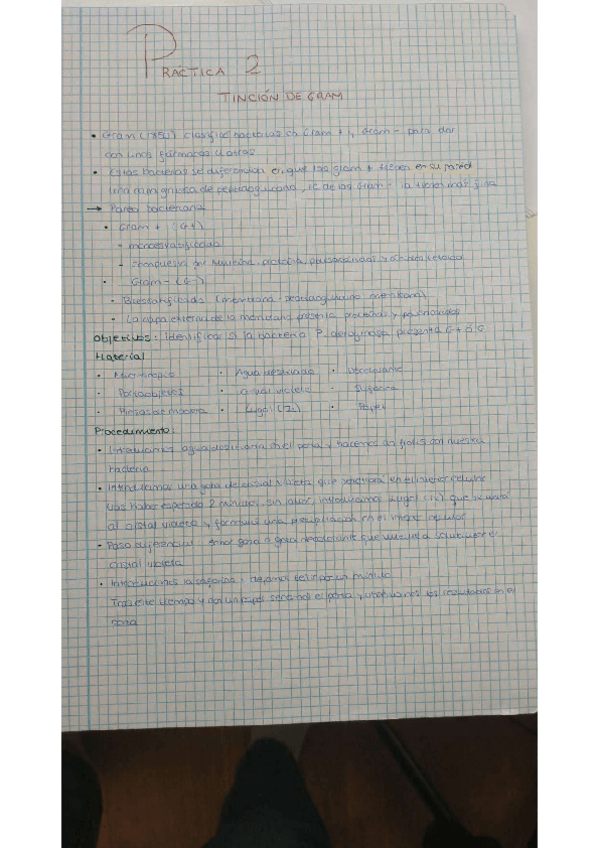 PRÁCTICA 2
TINCIÓN DE GRAM
• Gram (1884) clasificó bacterias en Gram + y Gram - para dar
con unos fármacos u otros
• Estas bacterias se diferencian en que las gram + tienen en su pared
una capa gruesa de peptidoglucano, de las Gram - la tienen más fina
→ Pared bacteriana
• Gram + (G+)
- monoestratificada
- compuesta por
• Gram - (G-)
- Biestratificada (membrana - peptidoglucano - membrana)
- La capa externa de la membrana presenta proteínas y
Objetivos: Identificar si la bacteria P. aeruginosa presenta G+ o G-
Material
• Microscopio • Agua destilada • Decolorante
• Portaobjetos • Cristal violeta • Safranina
• Pinzas de madera • Lugol (I2) • Papel
Procedimiento:
• Introducimos agua destilada en el porta y hacemos un frotis con nuestra
bacteria
• Introducimos una gota de cristal violeta que en el interior celular
tras haber esperado 2 minutos, sin lavar, introducimos lugol (I2) que se unirá
al cristal violeta y formará una precipitación en el interior celular
• Paso diferencial: gota a gota decolorante que
cristal violeta
• Introducimos la safranina y dejamos teñir por un minuto
ese tiempo y con un papel secamos el porta y observamos los resultados en el
porta